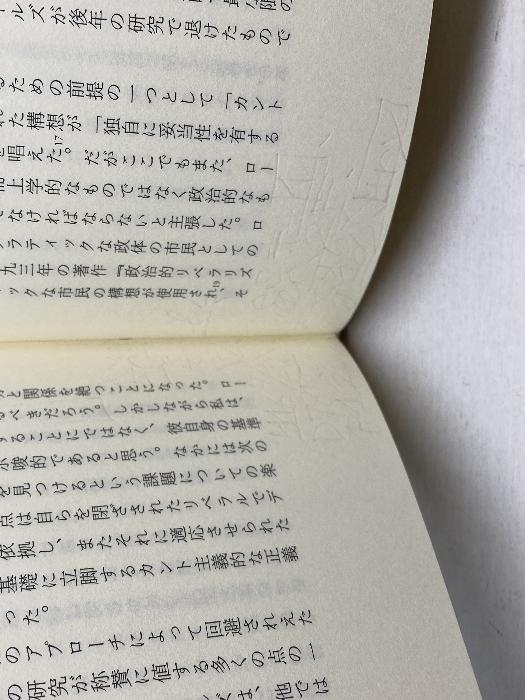 最
ルズが後年の研究で退けたもので
るための前提の一つとして「カント
れた構想が「独自に妥当性を有する
を唱えた。17だがここでもまた、ロー
而上学的なものではなく政治的なも
でなければならないと主張した。ロ
クラティックな政体の市民としての
九三年の著作『政治的リベラリズ
ックな市民の構想が使用され、19そ
りと関係を絶つことになった。ロー
るべきだろう。しかしながら私は、
することにではなく、彼自身の基準
示唆的であると思う。なかには次の
を見つけるという課題についての楽
点は自らを閉ざされたリベラルでデ
依拠し、またそれに適応させられた
基礎に立脚するカント主義的な正義
った。
のアプローチによって回避されえた
の研究が称賛に値する多くの点の一
は、他では